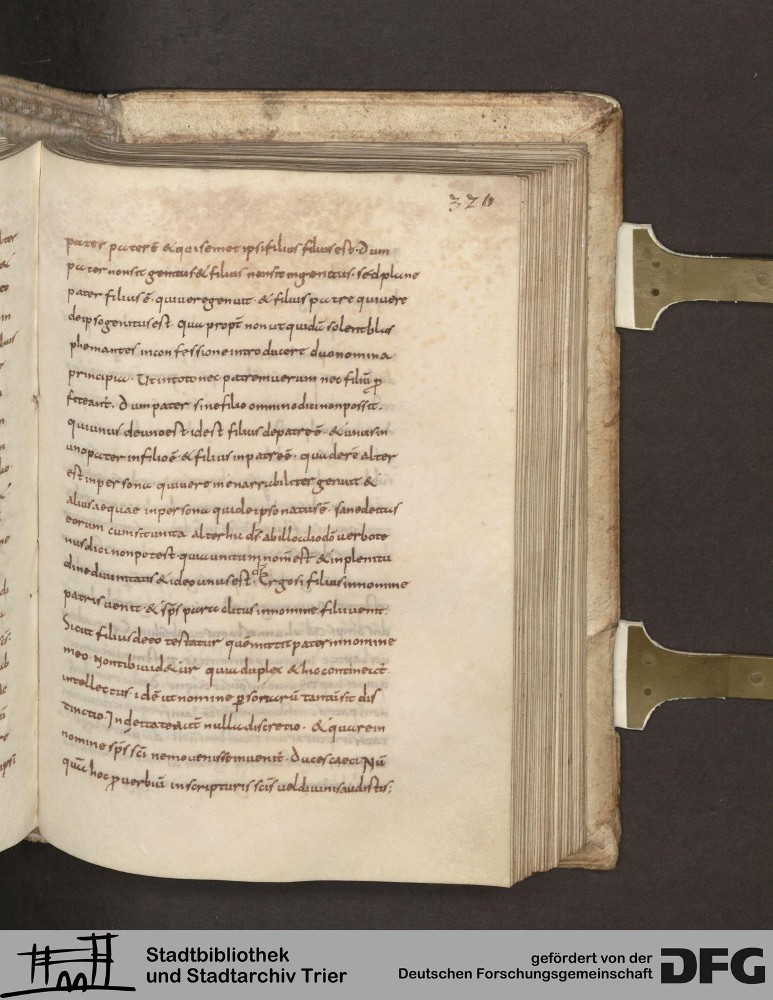 326
pater pater ē & qui semet ipsi filius filius est. Dum
pater non sit genitus & filius non sit ingenitus. sed plane
pater filius ē. qui uere genuit. & filius patre qui uere
de ipso genitus est. qua propt non ut quidā solent blas
phemantes in confessione introducere duo nomina
principia. Ut in toto nec patrem uerum nec filiū p
fiteant. Dum pater sine filio omnino dici non possit.
qui unus de uno est. id est filius de patre ē. & unus in
uno pater in filio ē & filius in patre ē. qua de re alter
est in persona qui uere inenarrabiliter genuit &
alius aeque in persona qui de ipso natus ē. sane detus
eorum cum sit unita alter hic ds ab illo
nus dici non potest quia unitum nom est & in plenitu
dine diuinitatis & ideo unus est ds. Ergo si filius in nomine
patris uenit. & sps paraclitus in nomine filii uenit.
Sicut filius de eo testatur quē mittit pater in nomine
meo. Non tibi uidetur quia duplex & hic contineat
intellectus. idē ut nomine psonarū tantū sit dis
tinctio. In deitate aut nulla discretio. & quare in
nomine sps sci nemo uenisse inuenit. Duces caeci Nū
quā hoc puerbiū in scripturis scis uel diuinis audistis;
Stadtbibliothek
und Stadtarchiv Trier
gefördert von der
Deutschen Forschungsgemeinschaft
DFG